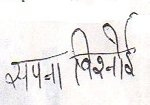 सपना विश्नोई